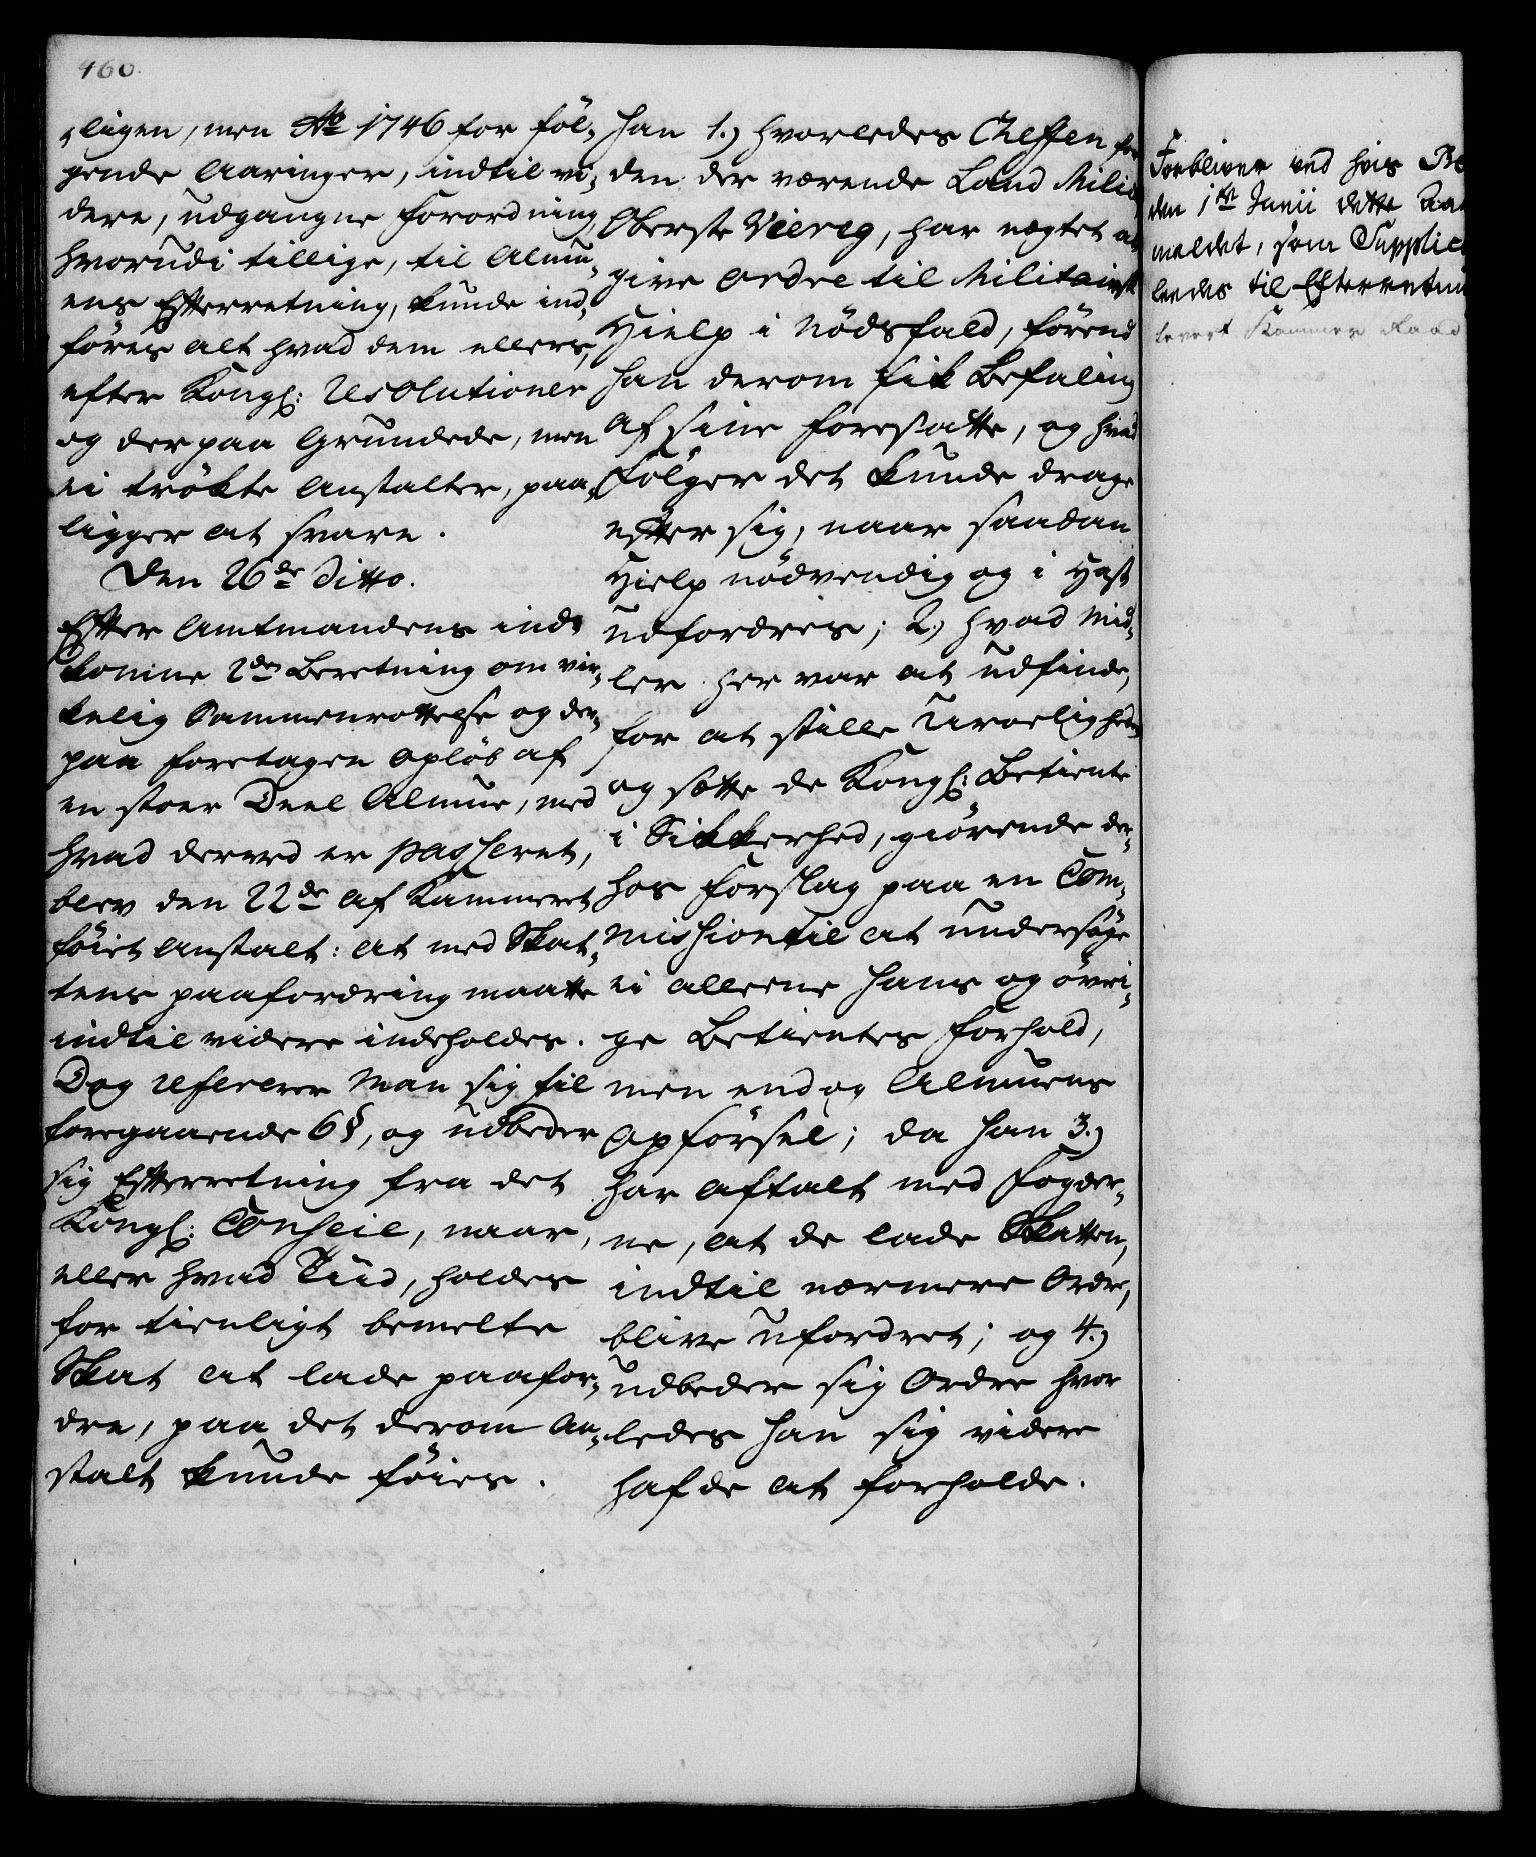 460.
ligen, men Ao 1746 for föl-
gende Aaringer, indtil vi-
dere, udgangne Forordning,
hvorudi tillige, til Almu-
ens Efterretning, kunde ind-
föres alt hvad dem ellers,
efter Kongl: Resolutioner
og derpaa Grundede, men
ei trökte Anstalter, paa-
ligger at svare.
Den 26de Ditto.
Efter Amtmandens ind-
komne 2den Beretning om vir-
kelig Sammenrottelse og der-
paa foretagen Opløb af
en stoer Deel Almue, med
hvad derved er passeret,
blev den 22de af Kammeret
föiet Anstalt: at med Skat-
tens paafordring maatte
indtil videre indeholdes.
Dog refererer Man sig til
foregaaende 6 §, og udbeder
sig Efterretning fra det
Kongl: Conseil, naar,
eller hvad Tiid, holdes
for tienligt bemelte
Skat at lade paafor-
dre, paa det derom An-
stalt kunde föies.
han 1.) hvorledes Cheffen for
den der værende Land Milice,
Oberste Viereg, har nægtet at
give Ordre til Militairsk
Hielp i Nödsfald, förend
han derom fik Befaling
af sine Foresatte, og hvad
Fölger det kunde drage
efter sig, naar saadan
Hielp nödvendig og i Hast
udfordres; 2.) hvad Mid-
ler her var at udfinde,
for at stille Uroelighed
og sætte de Kongl: Betiente
i Sikkerhed, giörende der-
hos Forslag paa en Com-
mission til at undersöge
ei alleene hans og övri-
ge Betientes Forhold,
men endog Almuens
Opförsel; da han 3.)
har aftalt med Fogder-
ne, at de lade Skatten,
indtil nærmere Ordre,
blive ufordret; og 4.)
udbeder sig Ordre hvor
ledes han sig videre
hafde at forholde.
Forbliver ved hvis
den 1ste Junii dette
meldet, som
ledes til Efterretni
Kammer Raad